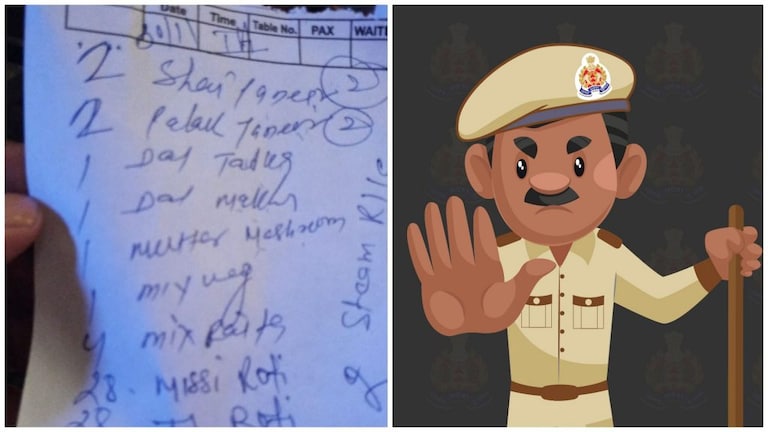 Date Time Table No. PAX WAITE
30/11 TH
2 Shai Paneer 2
2 Palak Paneer 2
1 Dal Tadka
1 Dal Makhni
1 Mutter Mashroom
1 mix veg
4 mix Raita
28. MISSI Roti
28 Roti
Steam Rice